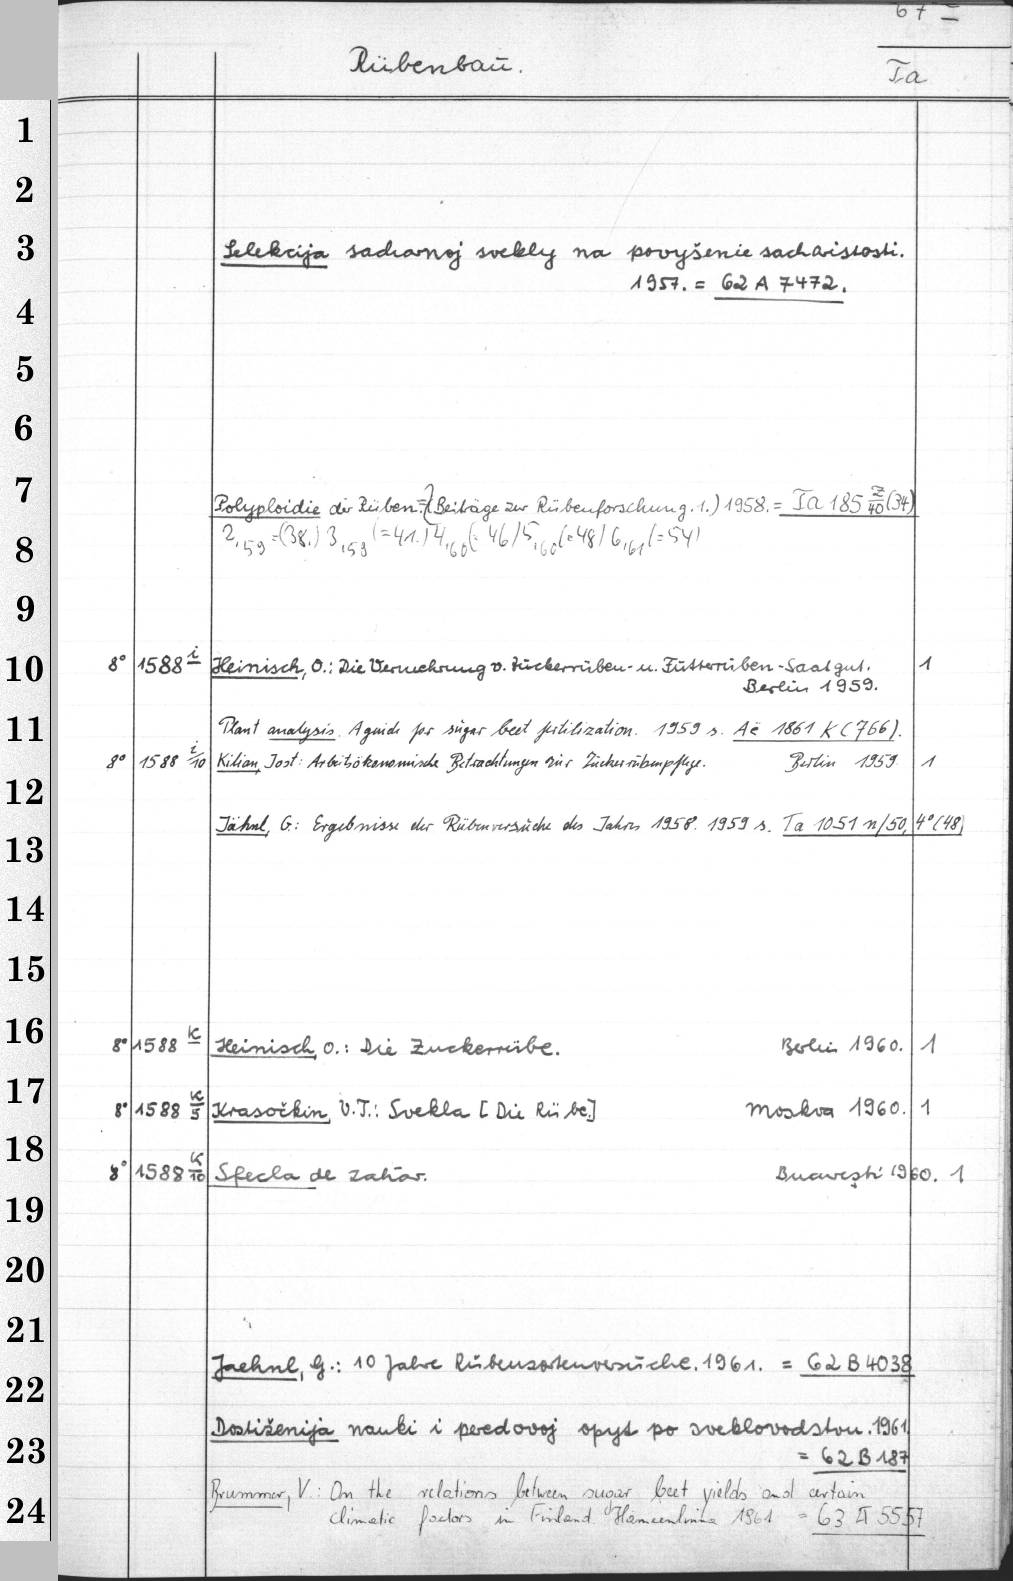 67 I
Rübenbau.
Ta
1
2
3
Selekcija sacharnoj svekly na povyšenie sacharistosti.
1957. = 62 A 7472.
4
5
6
7
Polyploidie der Rüben = (Beiträge zur Rübenforschung. 1.) 1958. = Ta 185 z/40 (34)
2,59 = (38.) 3,59 (=41.) 4,60 (=46) 5,60 (=48) 6,61 (=54)
8
9
10
8° 1588 i Heinisch, O.: Die Vermehrung v. Zuckerrüben- u. Futterrüben-Saatgut. 1
Berlin 1959.
11
Plant analysis. A guide for sugar beet fertilization. 1959 s. Ae 1861 K (766).
8° 1588 i/10 Kilian, Jost: Arbeitsökonomische Betrachtungen zur Zuckerrübenpflege. Berlin 1959. 1
12
Jähnl, G: Ergebnisse der Rübenversuche des Jahres 1958. 1959 s. Ta 1051 n/50, 4° (48)
13
14
15
16
8° 1588 K Heinisch, O.: Die Zuckerrübe. Berlin 1960. 1
17
8° 1588 K/5 Krasočkin, V.T.: Svekla [Die Rübe] Moskva 1960. 1
18
8° 1588 K/10 Sfecla de zahăr. Bucureşti 1960. 1
19
20
21
Jaehnl, G.: 10 Jahre Rübensortenversuche. 1961. = 62 B 4038
22
Dostiženija nauki i peredovoj opyt po sveklovodstvu. 1961.
23
= 62 B 187
Brummer, V.: On the relations between sugar beet yields and certain
24
climatic factors in Finland Hämeenlinna 1961 = 63 A 5557